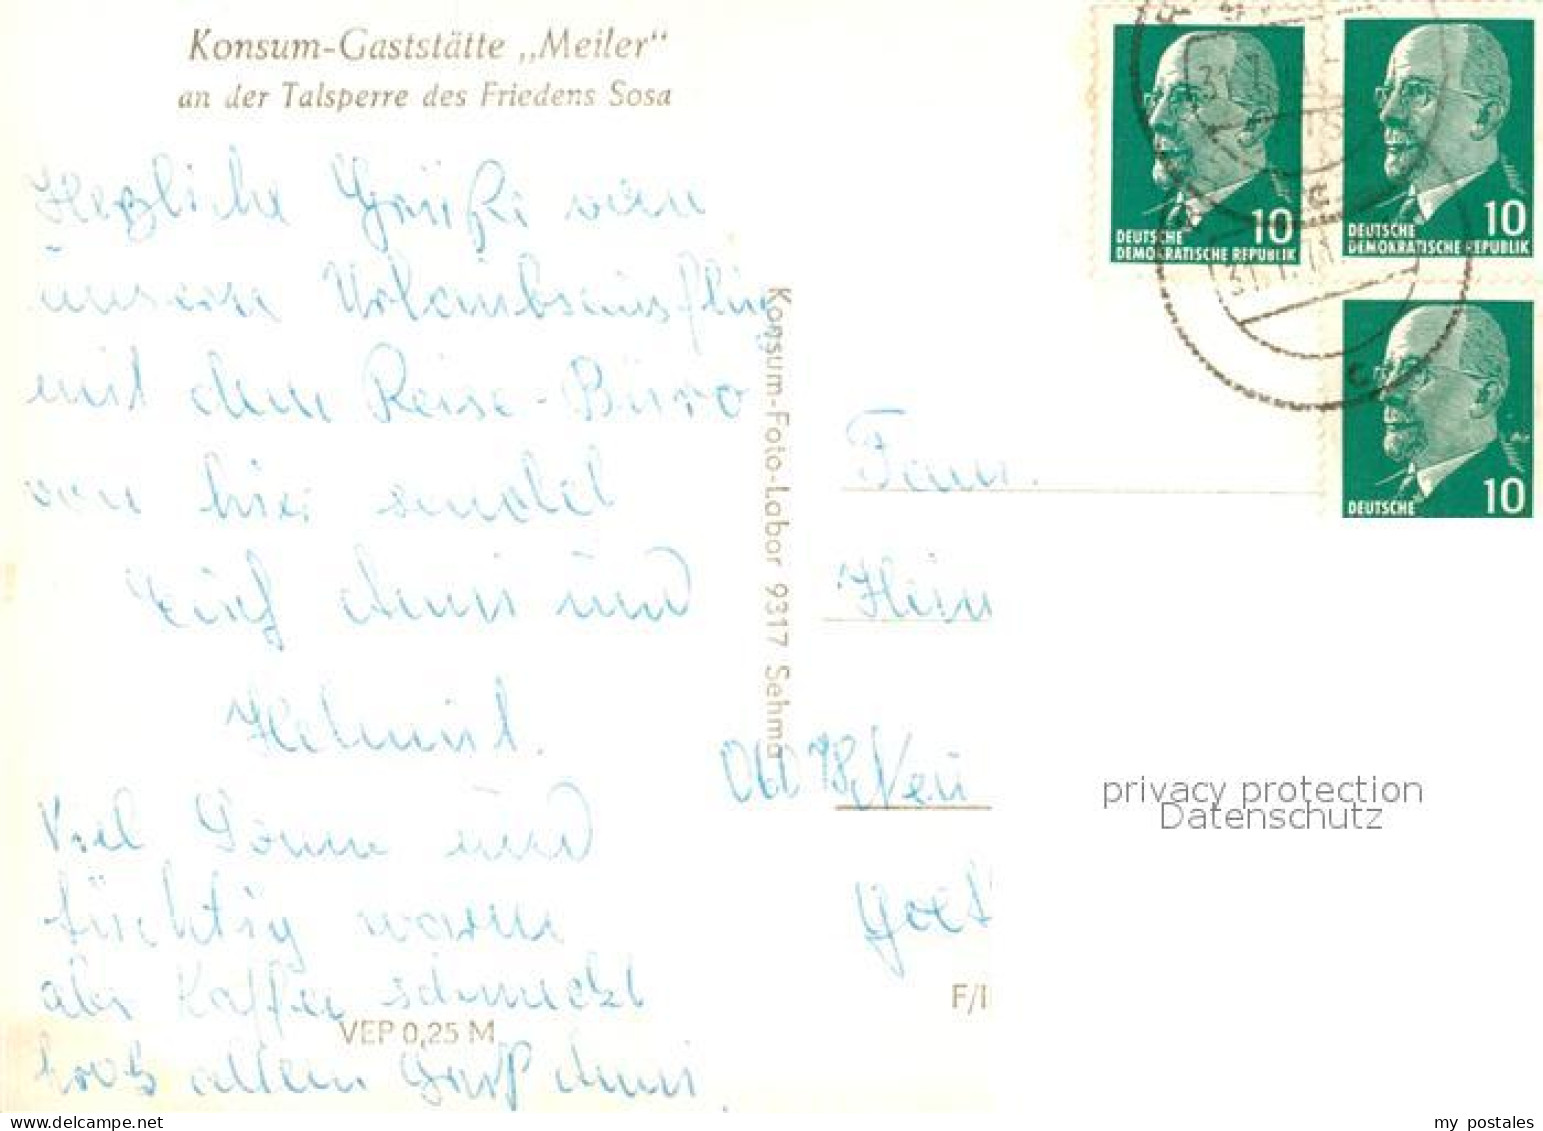 Konsum-Gaststätte „Meiler“
an der Talsperre des Friedens Sosa
Herzliche Grüße von
unserem Urlaubsausflug
mit dem Reise-Büro
von hier sendet
Euch Anni und
Helmut.
Viel Sonne und
tüchtig warm
aber Kaffee schmeckt
trotz allem Gruß Anni
VEP 0,25 M
Konsum-Foto-Labor 9317 Sehma
DEUTSCHE
DEMOKRATISCHE REPUBLIK
10
DEUTSCHE
DEMOKRATISCHE REPUBLIK
10
DEUTSCHE
10
Fam.
Hein
Neu
Goet
F/I
privacy protection
Datenschutz
my postales